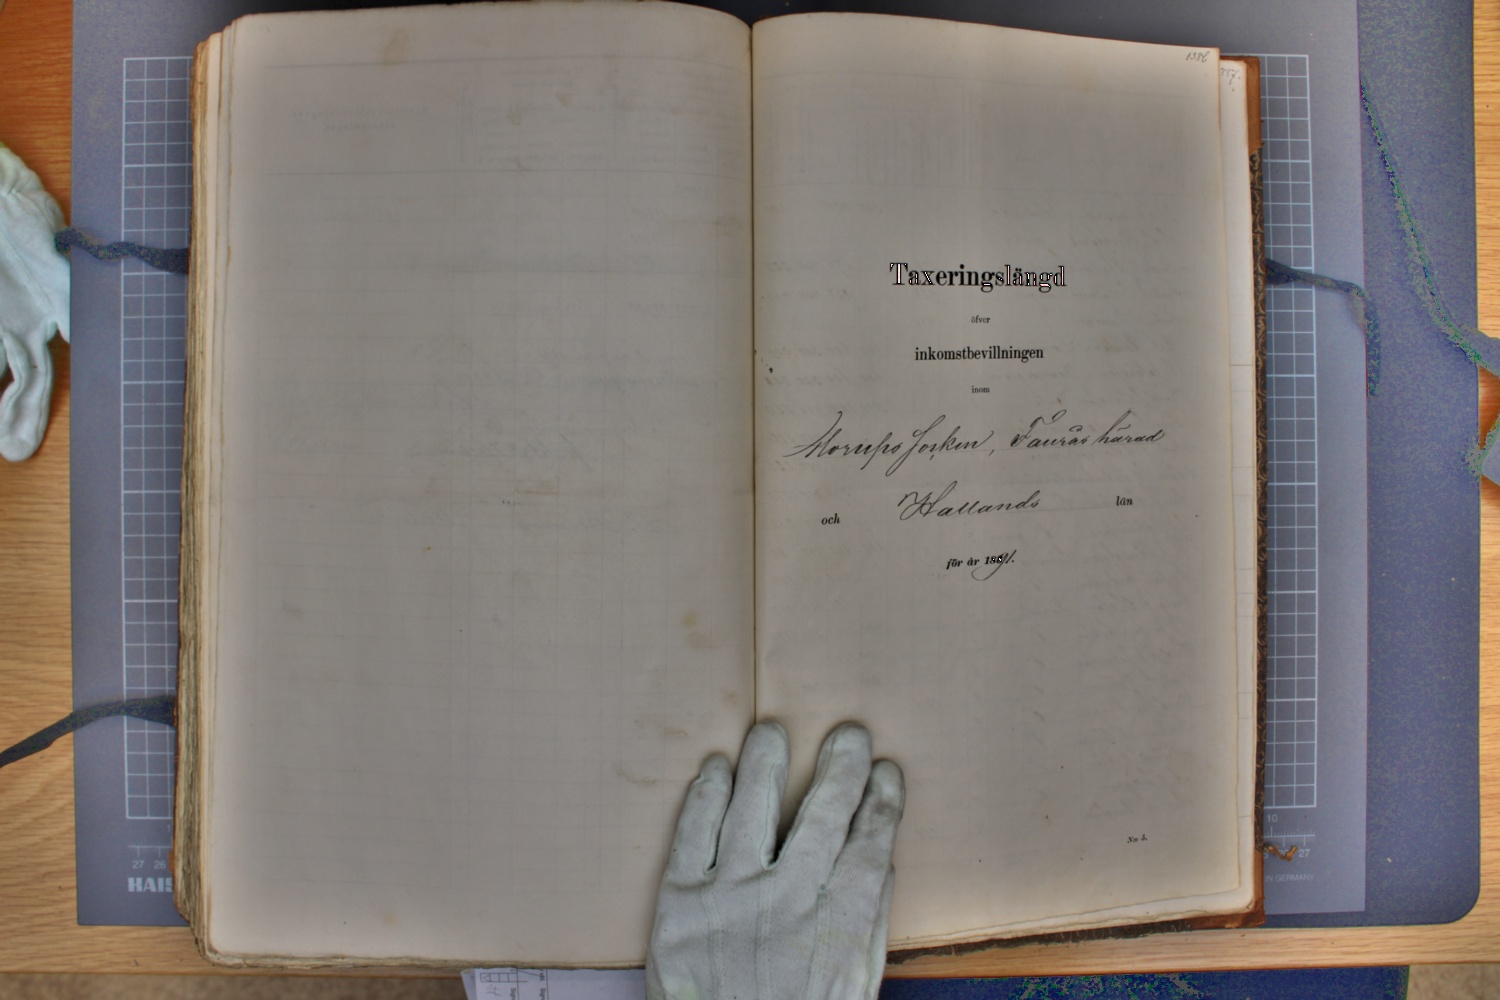 1386
Taxeringslängd
öfver
inkomstbevillningen
inom
Morups socken, Faurås härad
och Hallands län
för år 1891.
No 5.
27 26
10
27
IN GERMANY